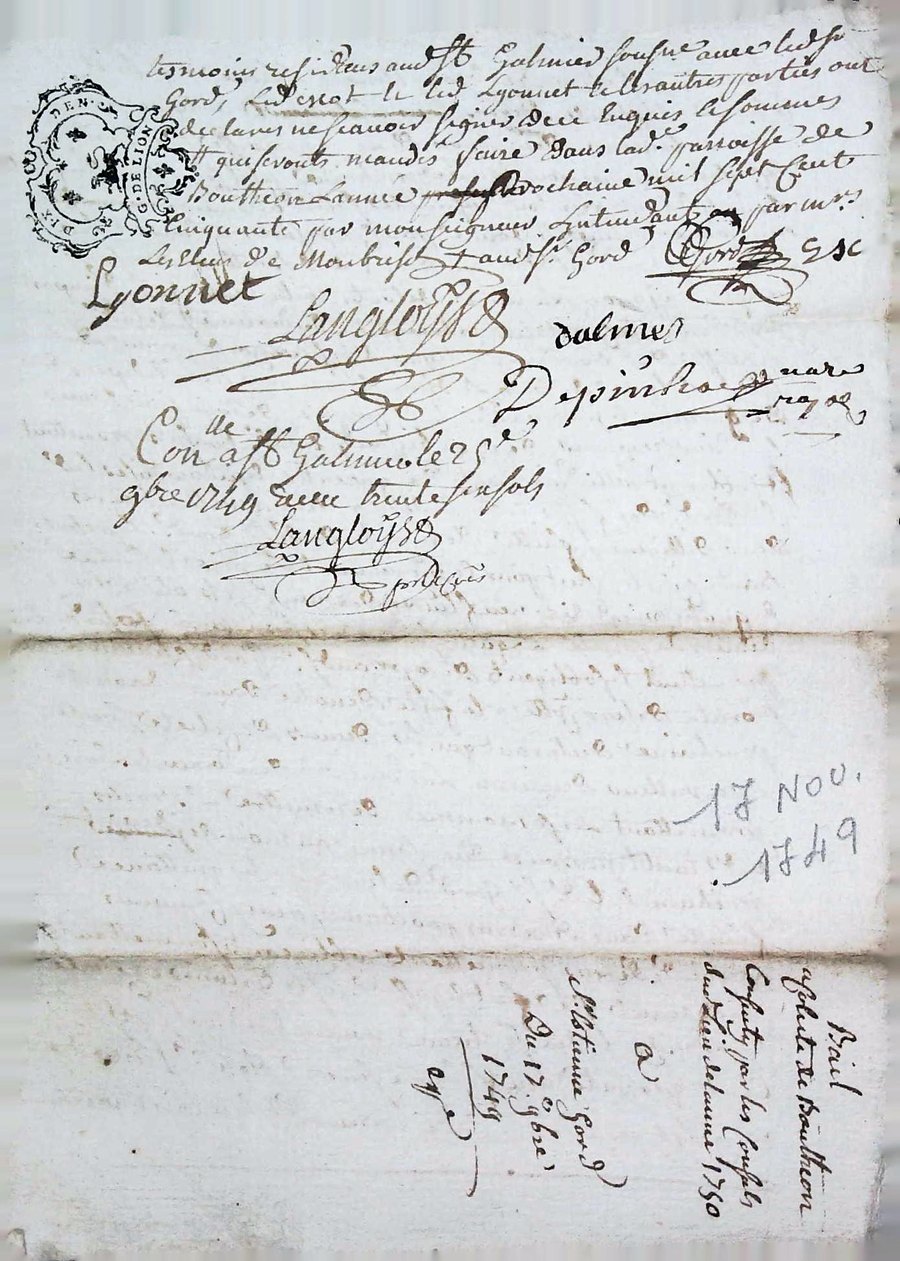 DIX DEN.
G. DE LION
tesmoins residens aud St Galmier sousne avec led sr
Gord, led le led Lyonnet et les autres parties ont
declarés ne scavoir signer de ce Enquis le sommes
qui seronts mandés faire dans lad.e parroisse de
Bouttheon Lannée prochaine mil sept Cent
Cinquante par monseigneur Lintendant ou par mrs
Les Elus de Montbrison aud sr. Gord Gord
Lyonnet
Langloys
dalmes
Depinhac
Con.lle a St Galmier le 25e
9bre 1749 recu trente six sols
Langloys
17 NOV.
1749
Bail
de Bouttheon
Consenty par les Consuls
dud. Lieu de lannee 1750
a
Sr. Estienne Gord
Du 17.e 9bre
1749